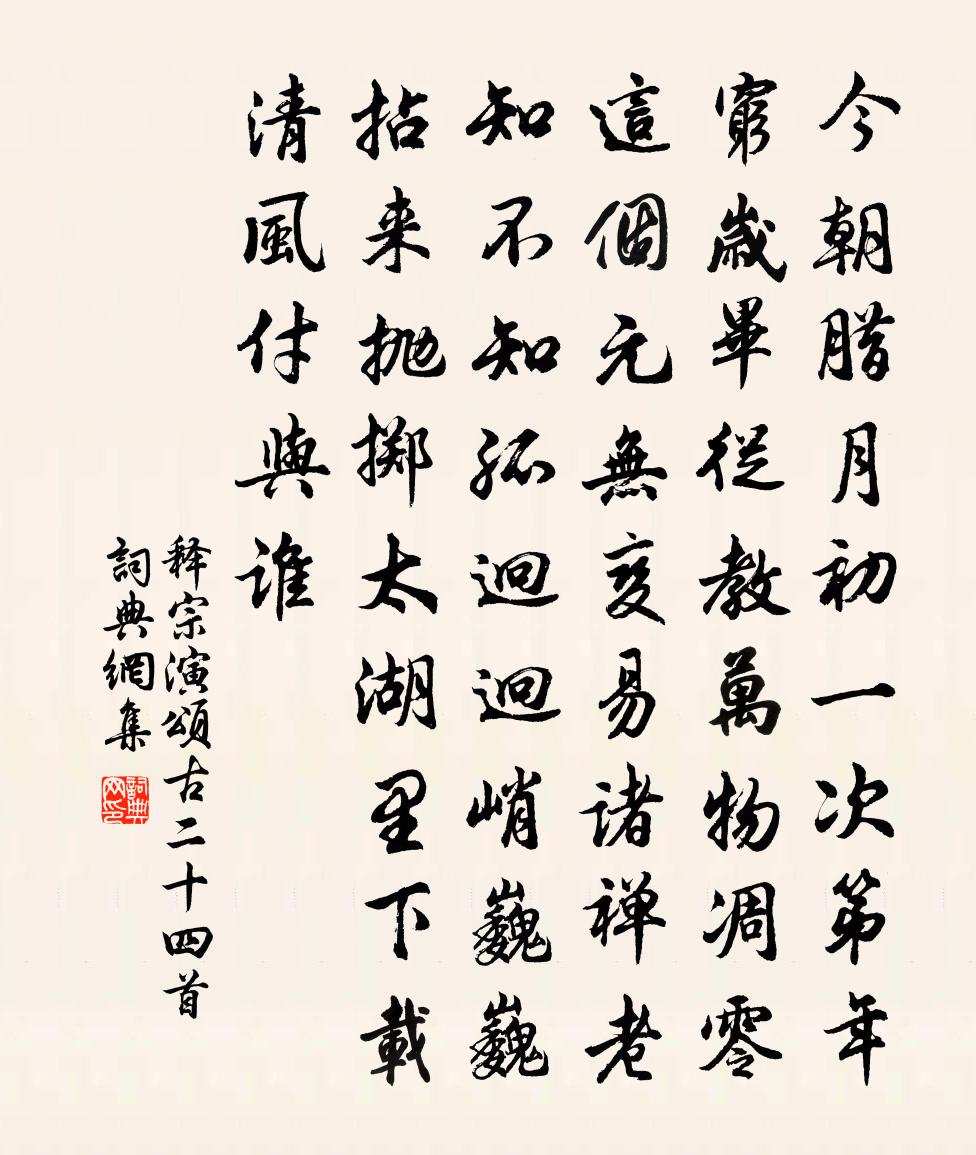 今朝腊月初一次第年
窮歲畢從教萬物凋零
這個元無变易诸禅老
知不知孤迥迥峭巍巍
拈来抛掷太湖里下載
清風付與誰
释宗演頌古二十四首
詞典網集
詞典网印